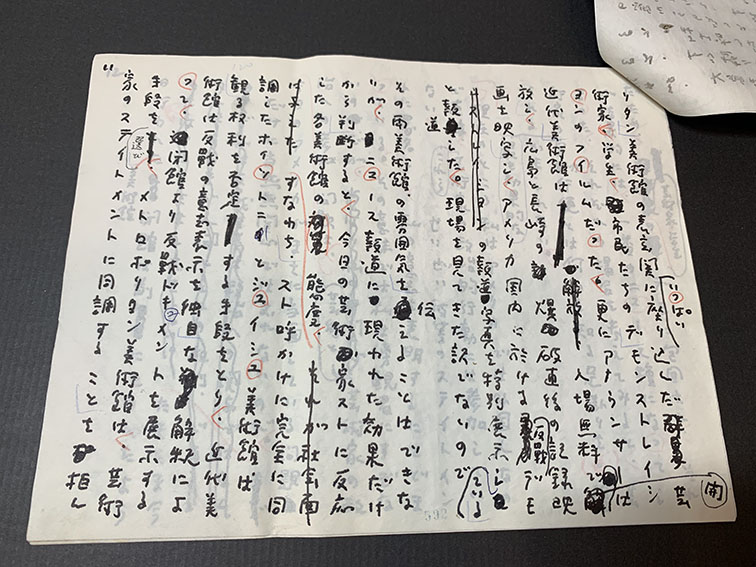 リタン美術館の表玄関に座り込した
いっぱい
芸
術家、学生、市民たちのデモンストレイシ
ョンのフイルムだった。更にアナウンサーは
近代美術館は 入場無料で
開
放し、広島と長崎の 爆破直後の記録映
画を映写し、アメリカ国内に於ける 反戦デモ
ストレイションの報道写真を特別展示し
ている
と報道した。現場を見てきた訳でないので
その両美術館の雰囲気を伝えることはできな
いが、ニュース報道に現われた効果だけ
から判断すると、今日の芸術家ストに反応
した各美術館の 態度、それが社会面
すなわち、スト呼かけに完全に同
調したホイットニーとジュイシュ美術館は
観る权利を否定する手段をとり、近代美
術館は反戦の意志表示を独自な解釈によ
って、閉館より反戦ドキュメントを展示する
手段を選び、メトロポリタン美術館は、芸術
家のステイトメントに同調することを拒ん
592